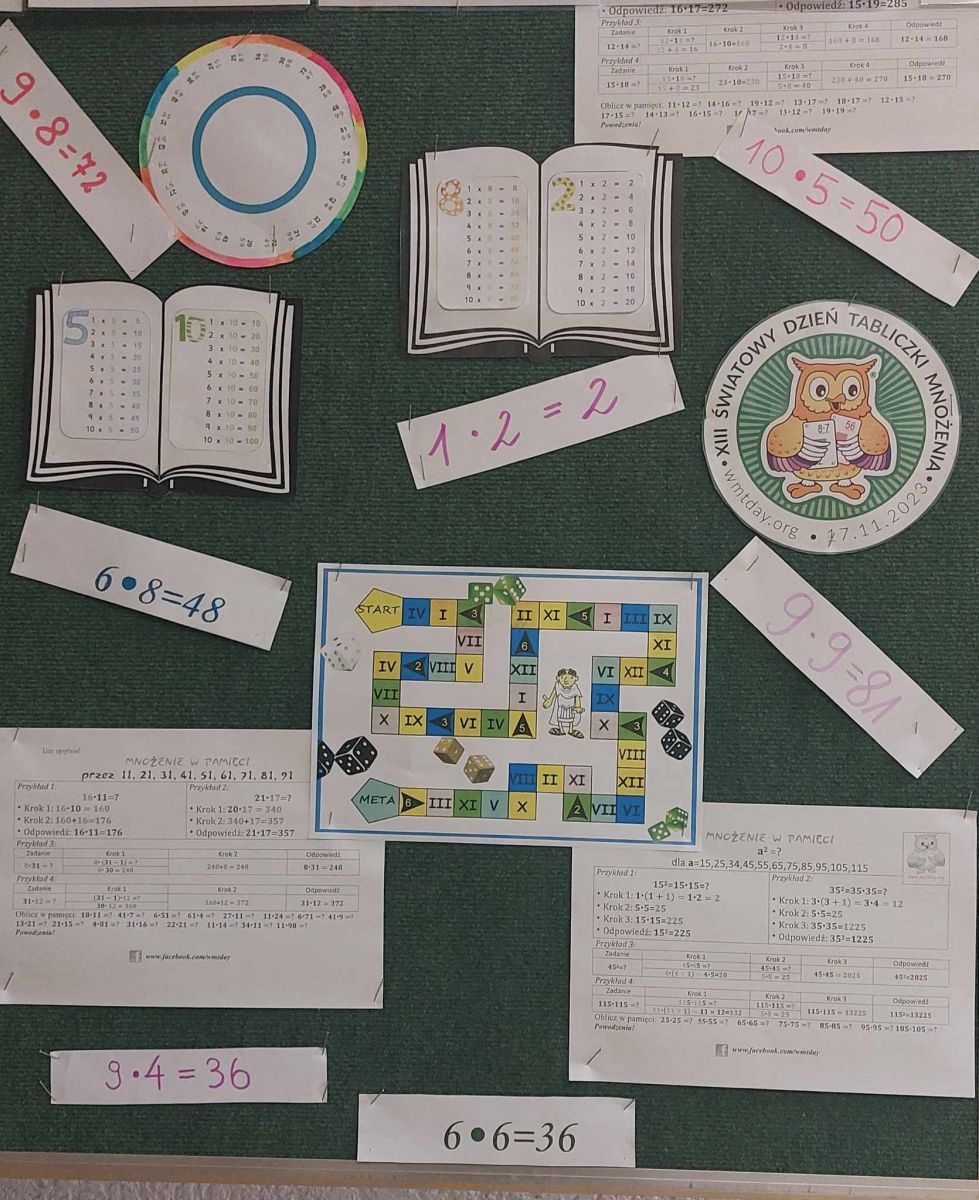 • Odpowiedź: 16·17=272
• Odpowiedź: 15·19=285
Przykład 3:
Zadanie Krok 1 Krok 2 Krok 3 Krok 4 Odpowiedź
12·14 =? 12 + 4 = 16 16·10=160 2·4 = 8 160 + 8 = 168 12·14 = 168
Przykład 4:
Zadanie Krok 1 Krok 2 Krok 3 Krok 4 Odpowiedź
15·18 =? 15·18 =? 15 + 8 = 23 23·10=230 15·18 =? 5·8 = 40 230 + 40 = 270 15·18 = 270
Oblicz w pamięci: 11·12 =? 14·16 =? 19·12 =? 13·17 =? 18·17 =? 12·15 =?
17·15 =? 14·13 =? 16·15 =? 13·12 =? 19·19 =?
Powodzenia!
book.com/wmtday
9·8=72
10·5=50
8
1 x 8 = 8
2 x 8 = 16
3 x 8 = 24
4 x 8 = 32
5 x 8 = 40
6 x 8 = 48
7 x 8 = 56
8 x 8 = 64
9 x 8 = 72
10 x 8 = 80
2
1 x 2 = 2
2 x 2 = 4
3 x 2 = 6
4 x 2 = 8
5 x 2 = 10
6 x 2 = 12
7 x 2 = 14
8 x 2 = 16
9 x 2 = 18
10 x 2 = 20
5
1 x 5 = 5
2 x 5 = 10
3 x 5 = 15
4 x 5 = 20
5 x 5 = 25
6 x 5 = 30
7 x 5 = 35
8 x 5 = 40
9 x 5 = 45
10 x 5 = 50
10
1 x 10 = 10
2 x 10 = 20
3 x 10 = 30
4 x 10 = 40
5 x 10 = 50
6 x 10 = 60
7 x 10 = 70
8 x 10 = 80
9 x 10 = 90
10 x 10 = 100
1·2=2
• XIII ŚWIATOWY DZIEŃ TABLICZKI MNOŻENIA •
8·7
56
wmtday.org • 17.11.2023
6•8=48
9·9=81
START IV I 3 II XI 5 I III IX
VII 6 XI
IV 2 VIII V XII VI XII 4
VII I IX
X IX 3 VI IV 5 X 3
VIII
VIII II XI XII
META 6 III XI V X 2 VII VI
Licz sprytnie!
MNOŻENIE W PAMIĘCI
przez 11, 21, 31, 41, 51, 61, 71, 81, 91
Przykład 1:
16·11=?
• Krok 1: 16·10 = 160
• Krok 2: 160+16=176
• Odpowiedź: 16·11=176
Przykład 2:
21·17=?
• Krok 1: 20·17 = 340
• Krok 2: 340+17=357
• Odpowiedź: 21·17=357
Przykład 3:
Zadanie Krok 1 Krok 2 Odpowiedź
8·31 = ? 8·(31 − 1) =? 8·30 = 240 240+8 = 248 8·31 = 248
Przykład 4:
Zadanie Krok 1 Krok 2 Odpowiedź
31·12 = ? (31−1)·12 =? 30·12 = 360 360+12 = 372 31·12 = 372
Oblicz w pamięci: 18·11 =? 41·7 =? 6·51 =? 61·4 =? 27·11 =? 11·24 =? 6·71 =? 41·9 =?
13·21 =? 21·15 =? 4·81 =? 31·16 =? 22·21 =? 11·14 =? 34·11 =? 11·98 =?
Powodzenia!
www.facebook.com/wmtday
MNOŻENIE W PAMIĘCI
a² =?
dla a=15,25,34,45,55,65,75,85,95,105,115
Przykład 1:
15²=15·15=?
• Krok 1: 1·(1 + 1) = 1·2 = 2
• Krok 2: 5·5=25
• Krok 3: 15·15=225
• Odpowiedź: 15²=225
Przykład 2:
35²=35·35=?
• Krok 1: 3·(3 + 1) = 3·4 = 12
• Krok 2: 5·5=25
• Krok 3: 35·35=1225
• Odpowiedź: 35²=1225
Przykład 3:
Zadanie Krok 1 Krok 2 Krok 3 Odpowiedź
45²=? 45·45 =? 4·(4 + 1) = 4·5=20 45·45 =? 5·5 = 25 45·45 = 2025 45²=2025
Przykład 4:
Zadanie Krok 1 Krok 2 Krok 3 Odpowiedź
115·115 =? 115·115 =? 11·(11 + 1) = 11 × 12=132 115·115 =? 5·5 = 25 115·115 = 13225 115²=13225
Oblicz w pamięci: 25·25 =? 55·55 =? 65·65 =? 75·75 =? 85·85 =? 95·95 =? 105·105 =?
Powodzenia!
www.facebook.com/wmtday
9·4=36
6•6=36